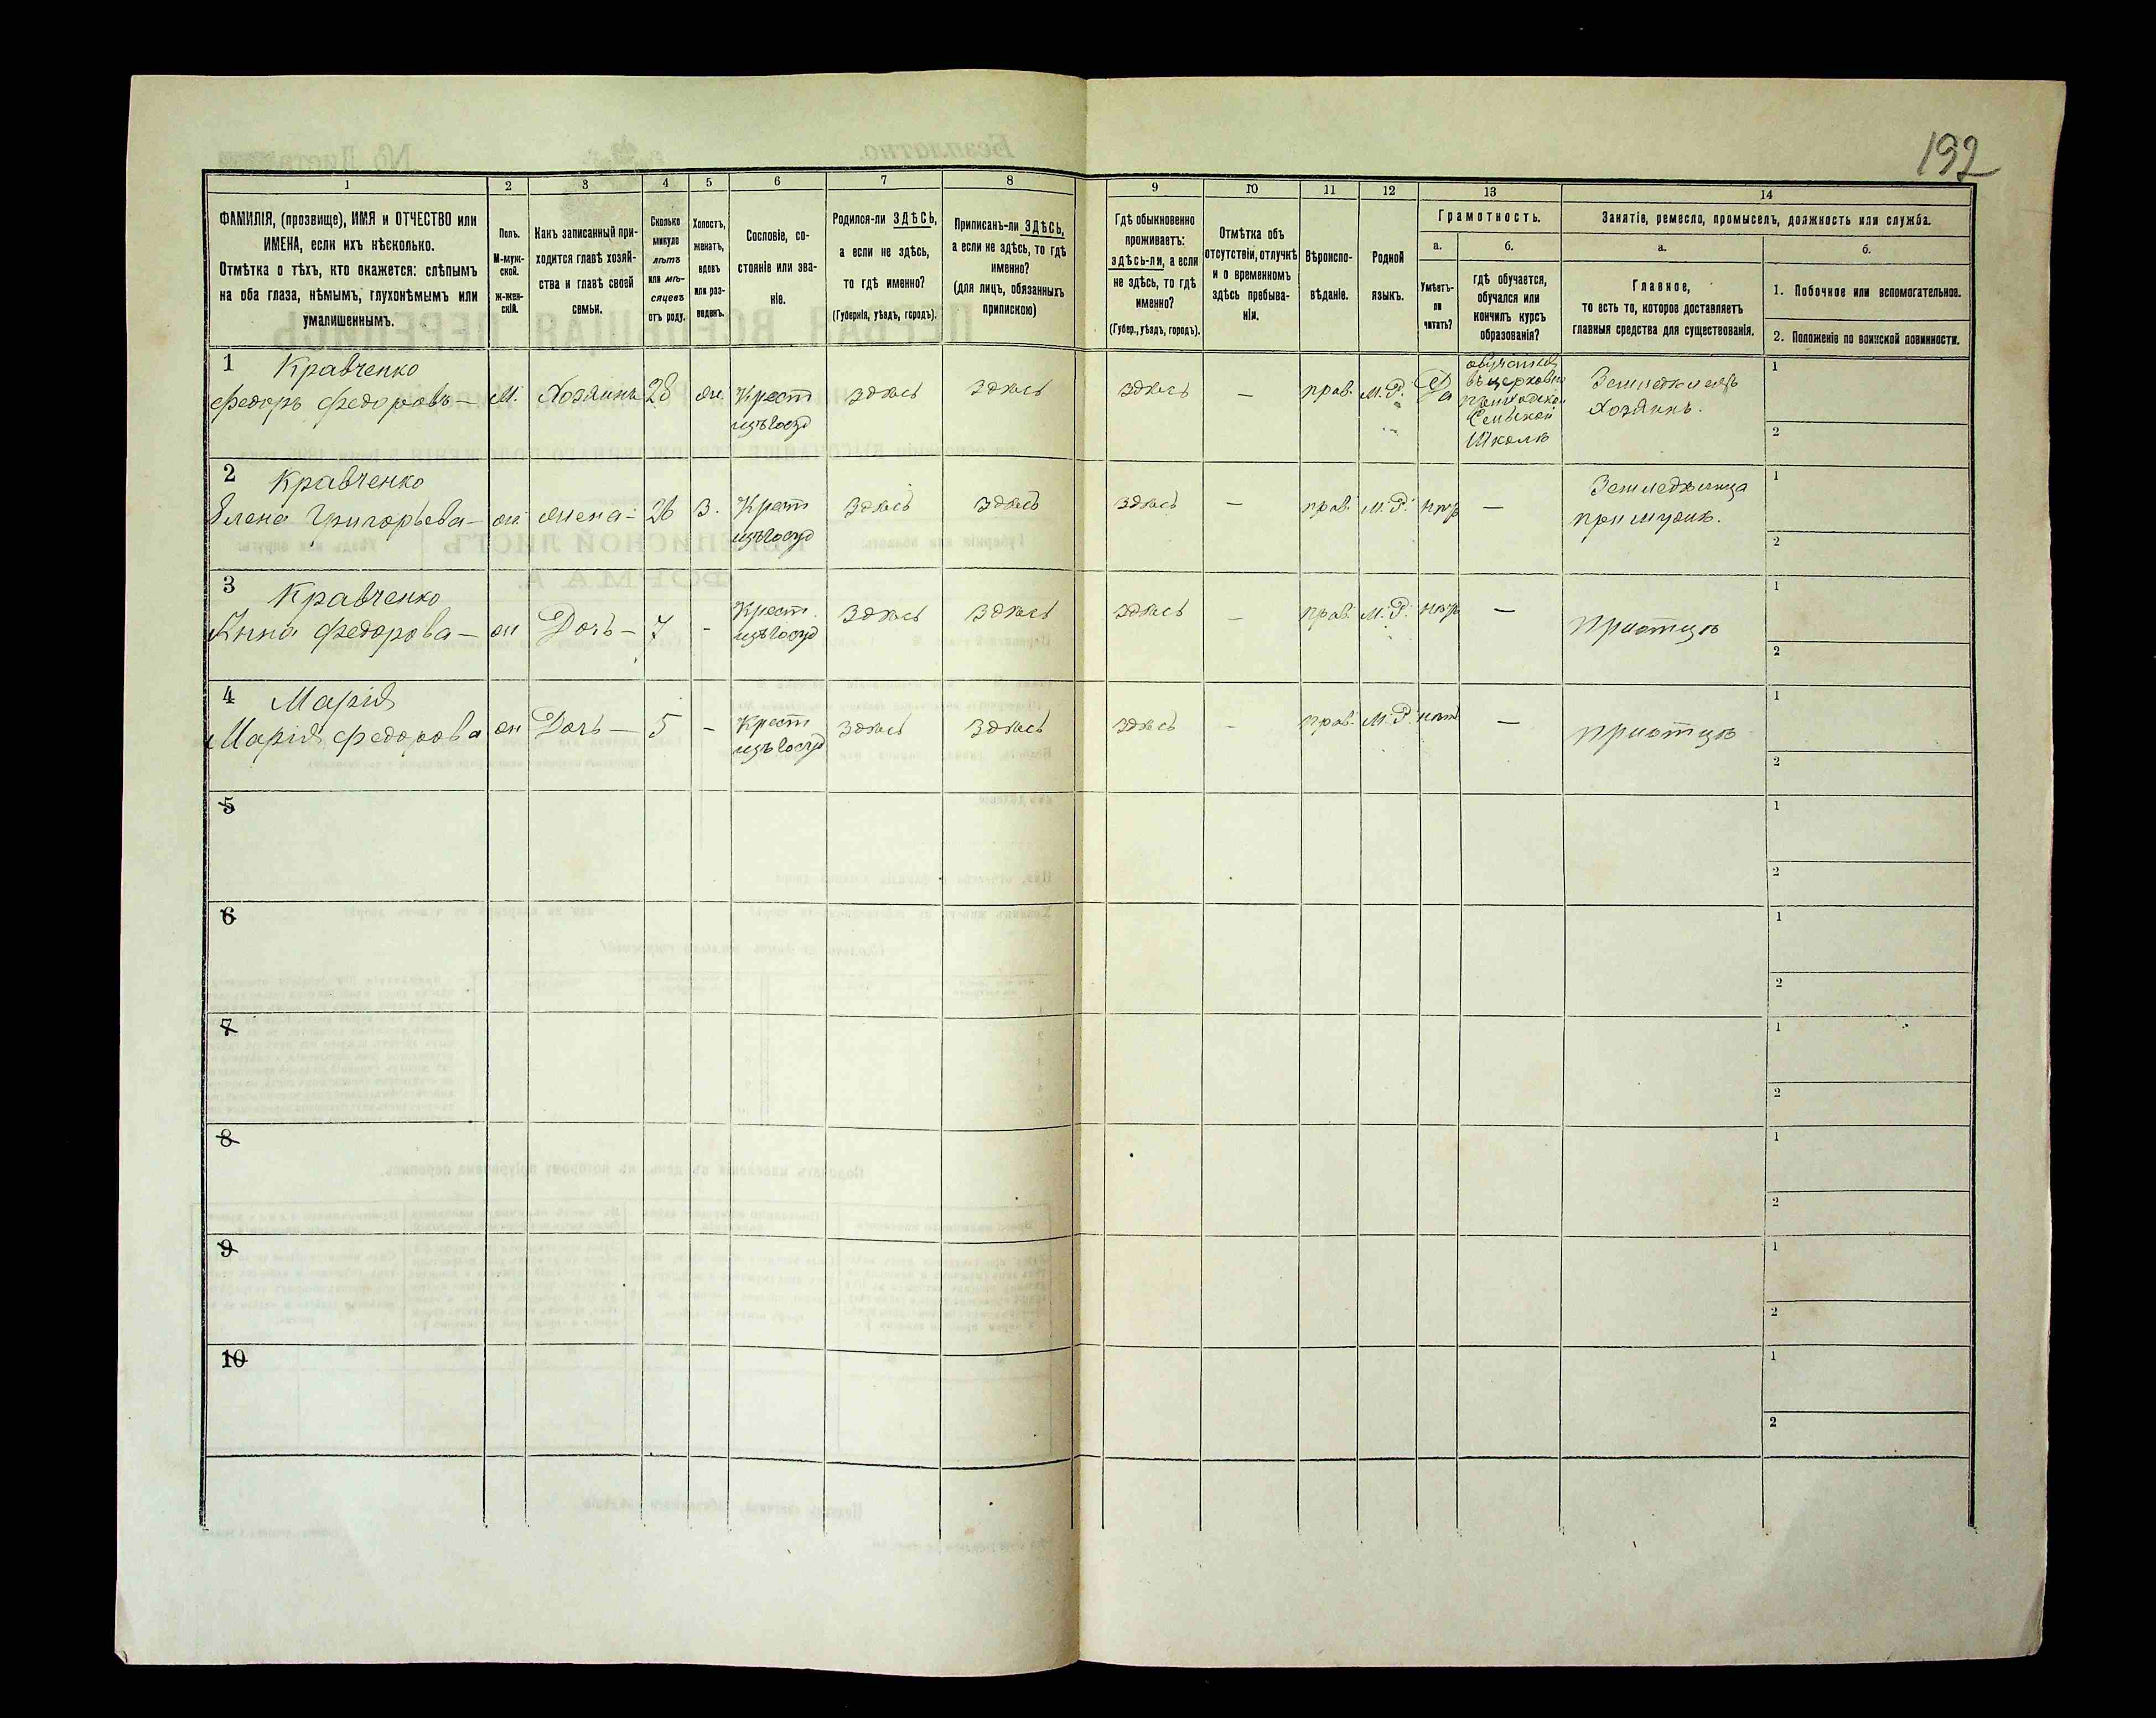 192
1 2 3 4 5 6 7 8 9 10 11 12 13 14
ФАМИЛІЯ, (прозвище), ИМЯ и ОТЧЕСТВО или
ИМЕНА, если ихъ нѣсколько.
Отмѣтка о тѣхъ, кто окажется: слѣпымъ
на оба глаза, нѣмымъ, глухонѣмымъ или
умалишеннымъ.
Полъ.
М-муж-
ской.
ж-жен-
скій.
Какъ записанный при-
ходится главѣ хозяй-
ства и главѣ своей
семьи.
Сколько
минуло
лѣтъ
или мѣ-
сяцевъ
отъ роду.
Холостъ,
женатъ,
вдовъ
или раз-
веденъ.
Сословіе, со-
стояніе или зва-
ніе.
Родился-ли ЗДѢСЬ,
а если не здѣсь,
то гдѣ именно?
(Губернія, уѣздъ, городъ).
Приписанъ-ли ЗДѢСЬ,
а если не здѣсь, то гдѣ
именно?
(для лицъ, обязанныхъ
припискою)
Гдѣ обыкновенно
проживаетъ:
здѣсь-ли, а если
не здѣсь, то гдѣ
именно?
(Губер., уѣздъ, городъ).
Отмѣтка объ
отсутствіи, отлучкѣ
и о временномъ
здѣсь пребыва-
ніи.
Вѣроиспо-
вѣданіе.
Родной
языкъ.
Грамотность.
а.
Умѣетъ-
ли
читать?
б.
гдѣ обучается,
обучался или
кончилъ курсъ
образованія?
Занятіе, ремесло, промыселъ, должность или служба.
а.
Главное,
то есть то, которое доставляетъ
главныя средства для существованія.
б.
1. Побочное или вспомогательное.
2. Положеніе по воинской повинности.
1 Кравченко
Федоръ Федоровъ — М. Хозяинъ 28 ж. Крест здѣсь здѣсь здѣсь — прав. М.Р. Да
изъ госуд
обучался
въ церковно
приходской
Сельской
Школѣ
Земледѣлецъ
Хозяинъ.
1
2
2 Кравченко
Елена Григорьева — ж жена - 26 З. Крест здѣсь здѣсь здѣсь — прав. М.Р. нѣтъ —
изъ госуд
Земледѣлица
при мужѣ.
1
2
3 Кравченко
Анна Федорова — ж Дочь — 7 - Крест. здѣсь здѣсь здѣсь — прав. М.Р. нѣтъ —
изъ госуд
при отцѣ
1
2
4 Марія
Марія Федорова ж Дочь — 5 - Крест здѣсь здѣсь здѣсь - прав. М.Р. нѣтъ —
изъ госуд
при отцѣ
1
2
5
1
2
6
1
2
7
1
2
8
1
2
9
1
2
10
1
2